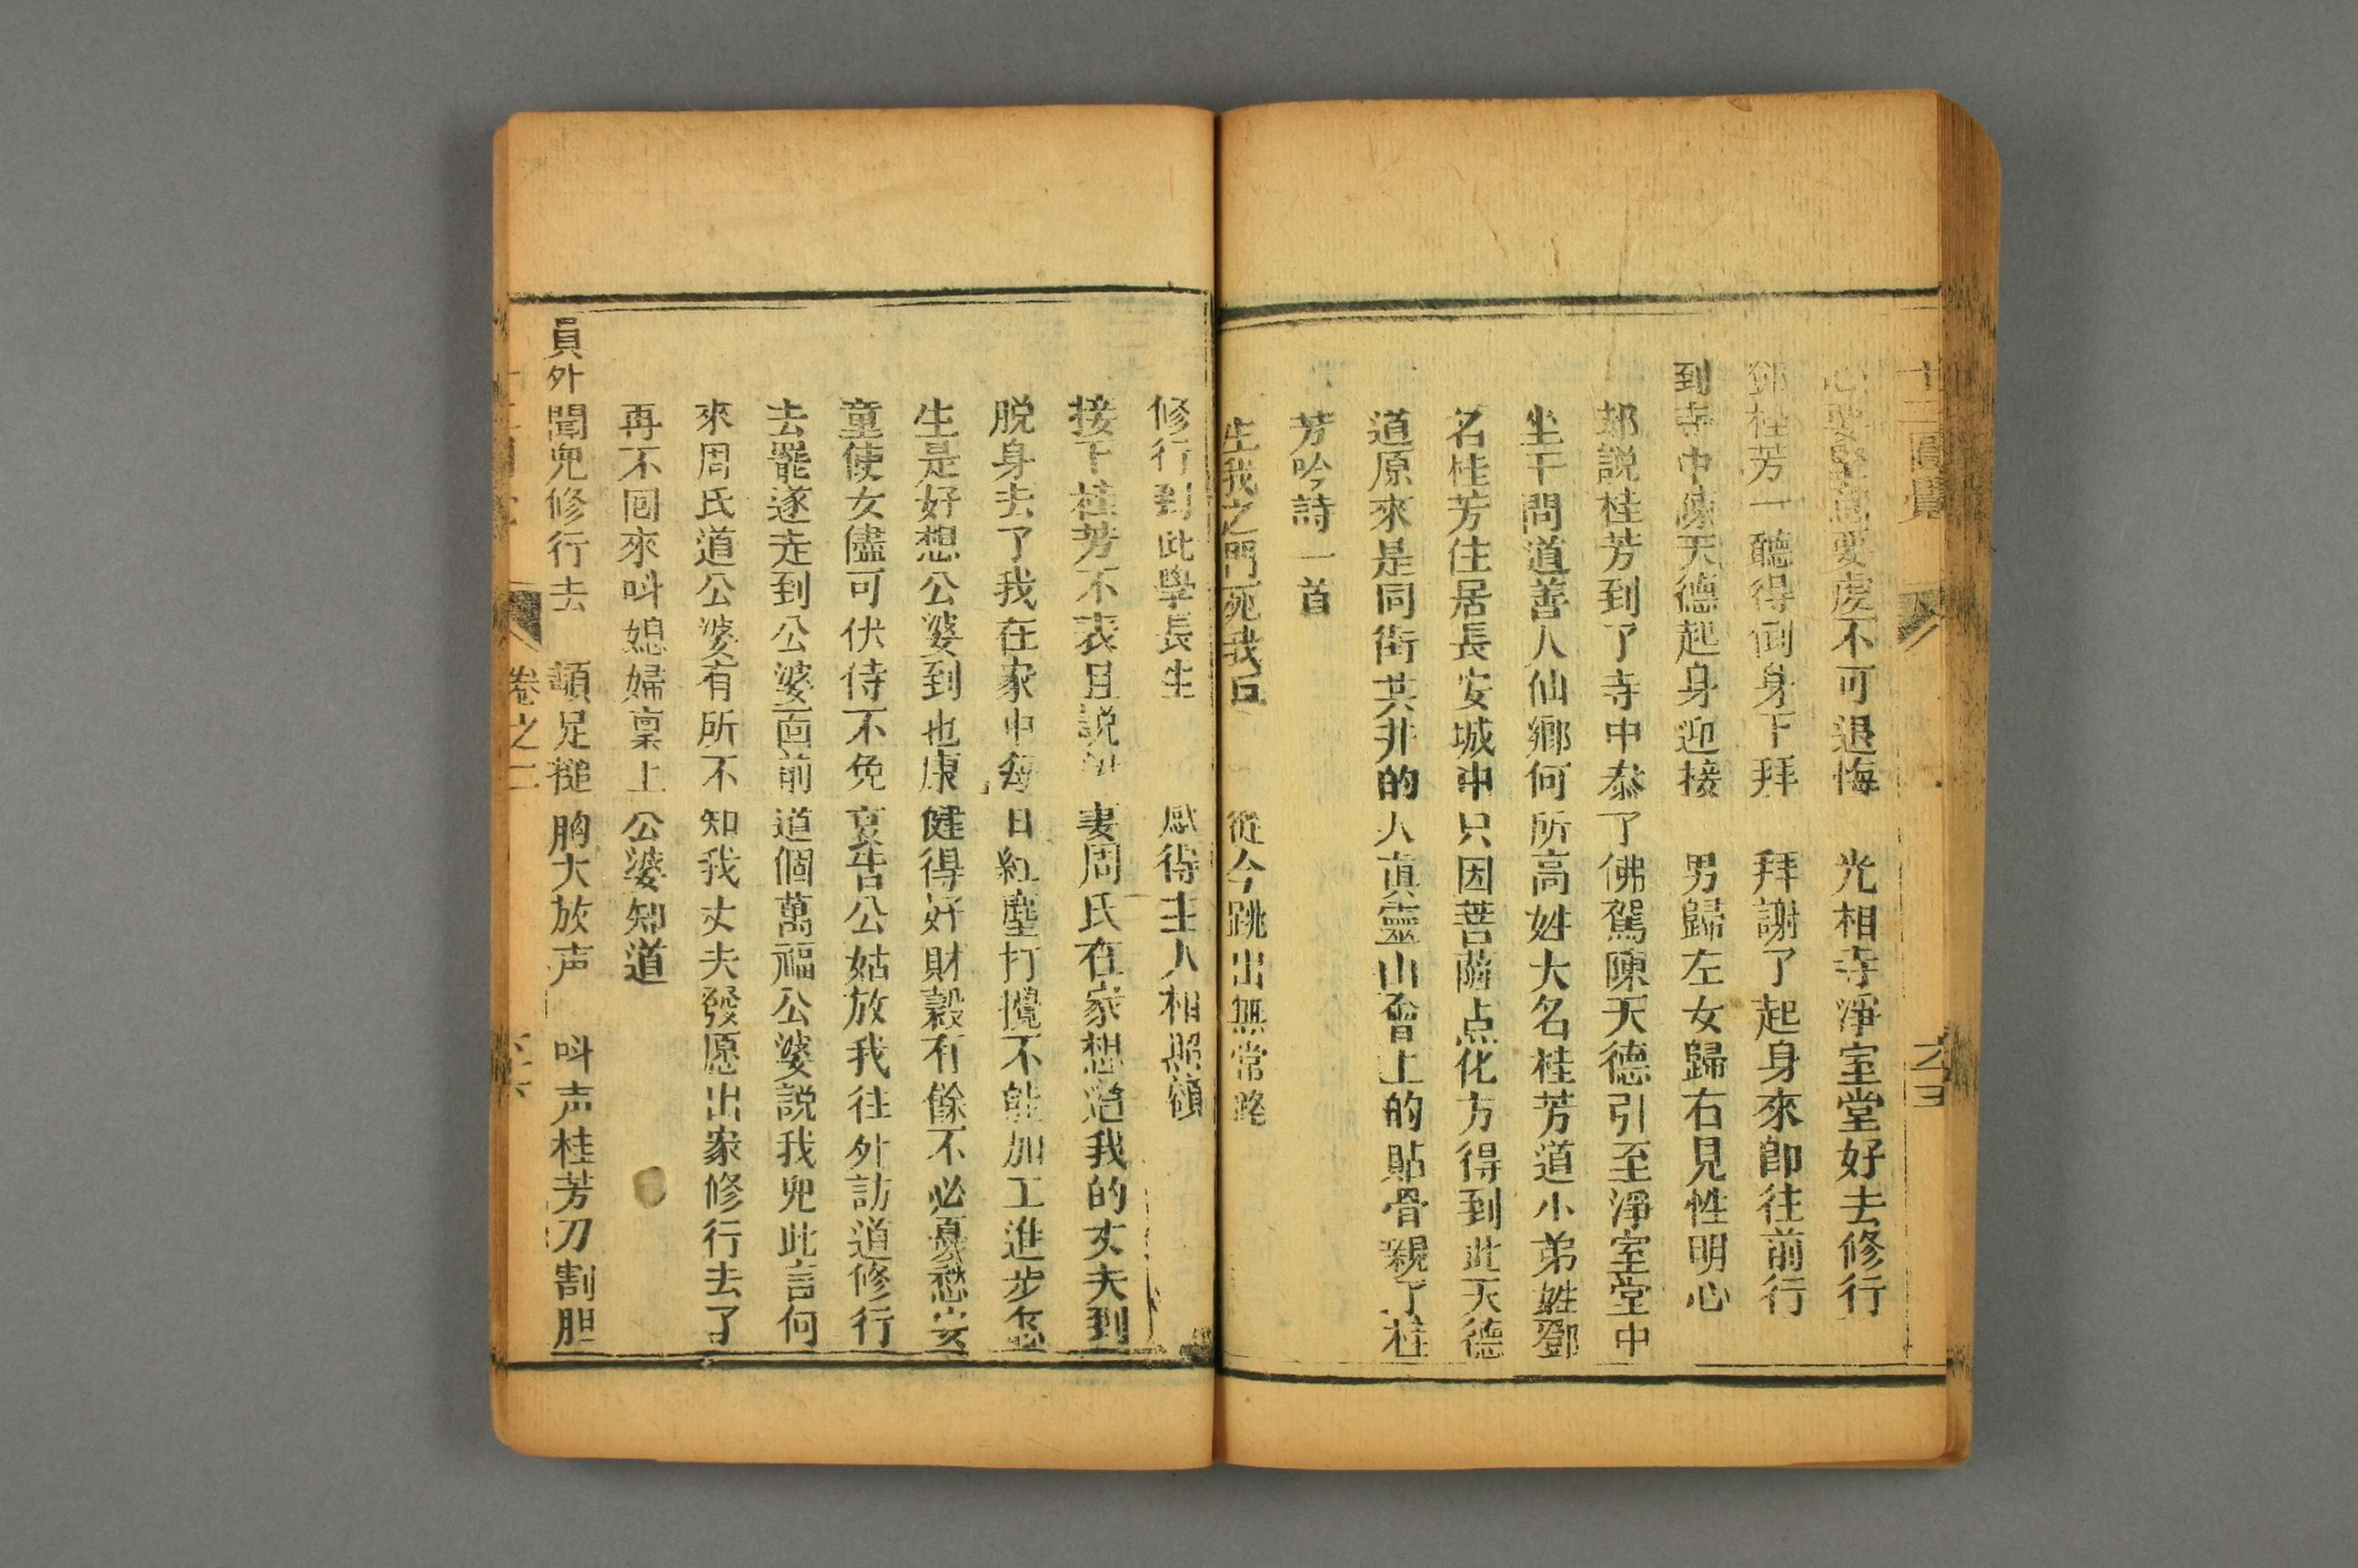 十二圓覺 六十五
心要堅意要虔不可退悔 光相寺淨室堂好去修行
鄧桂芳一聽得倒身下拜 拜謝了起身來卽往前行
到寺中陳天德起身迎接 男歸左女歸右見性明心
却説桂芳到了寺中叅了佛駕陳天德引至淨室堂中
坐下問道善人仙鄉何所高姓大名桂芳道小弟姓鄧
名桂芳住居長安城中只因菩薩点化方得到此天德
道原來是同街共井的人真靈山會上的貼骨親了桂
芳吟詩一首
生我之門死我戶 從今跳出無常路
修行到此學長生 感得主人相照顧
接下桂芳不表且説 妻周氏在家想道我的丈夫到
脱身去了我在家中每日紅塵打攪不能加工進步怎
生是好想公婆到也康健得好財穀有餘不必憂愁安
童使女儘可伏侍不免哀告公姑放我往外訪道修行
去罷遂走到公婆面前道個萬福公婆説我兒此言何
來周氏道公婆有所不知我丈夫發愿出家修行去了
再不囘來呌媳婦禀上公婆知道
員外聞兒修行去 頓足搥胸大放声 呌声桂芳刀割胆
卷之二 六六